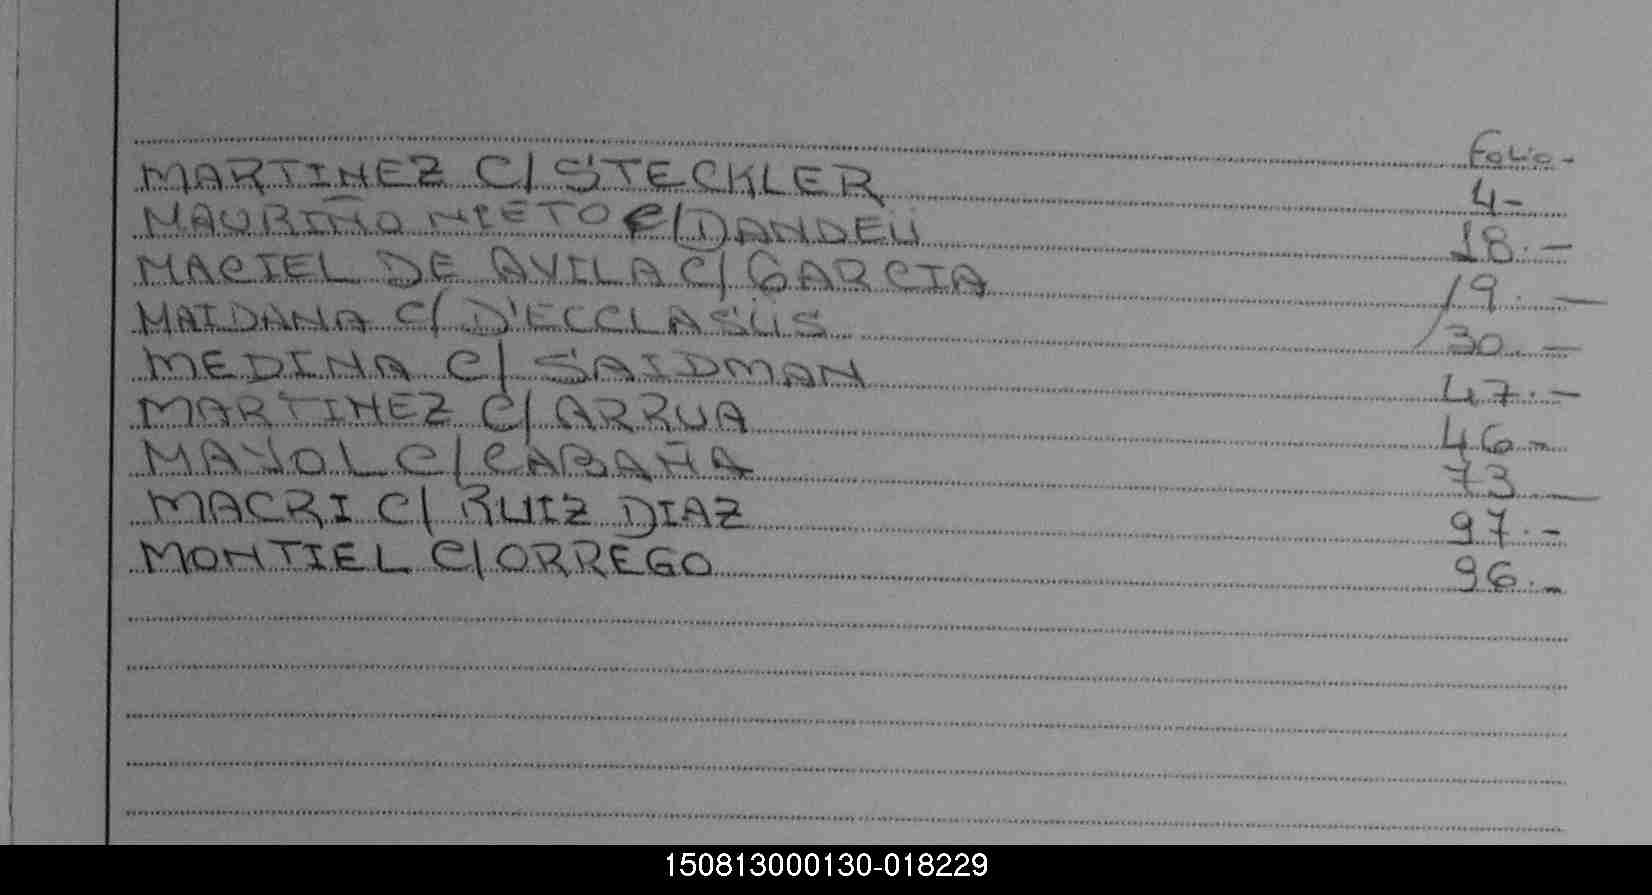 Folio-
MARTINEZ C/ STECKLER 4-
MAURIÑO NIETO C/ DANDEU 18.-
MACIEL DE AVILA C/ GARCIA 19.-
MAIDANA C/ D'ECCLASUS 30.-
MEDINA C/ SAIDMAN 47.-
MARTINEZ C/ ARRUA 46-
MAYOL C/ CABAÑA 73-
MACRI C/ RUIZ DIAZ 97.-
MONTIEL C/ ORREGO 96.-
150813000130-018229